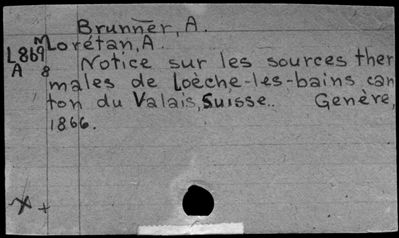 Brunner, A.
M Lorétan, A.
L869 Notice sur les sources ther
A 8 males de Loèche-les-bains can
ton du Valais, Suisse.. Genère,
1866.